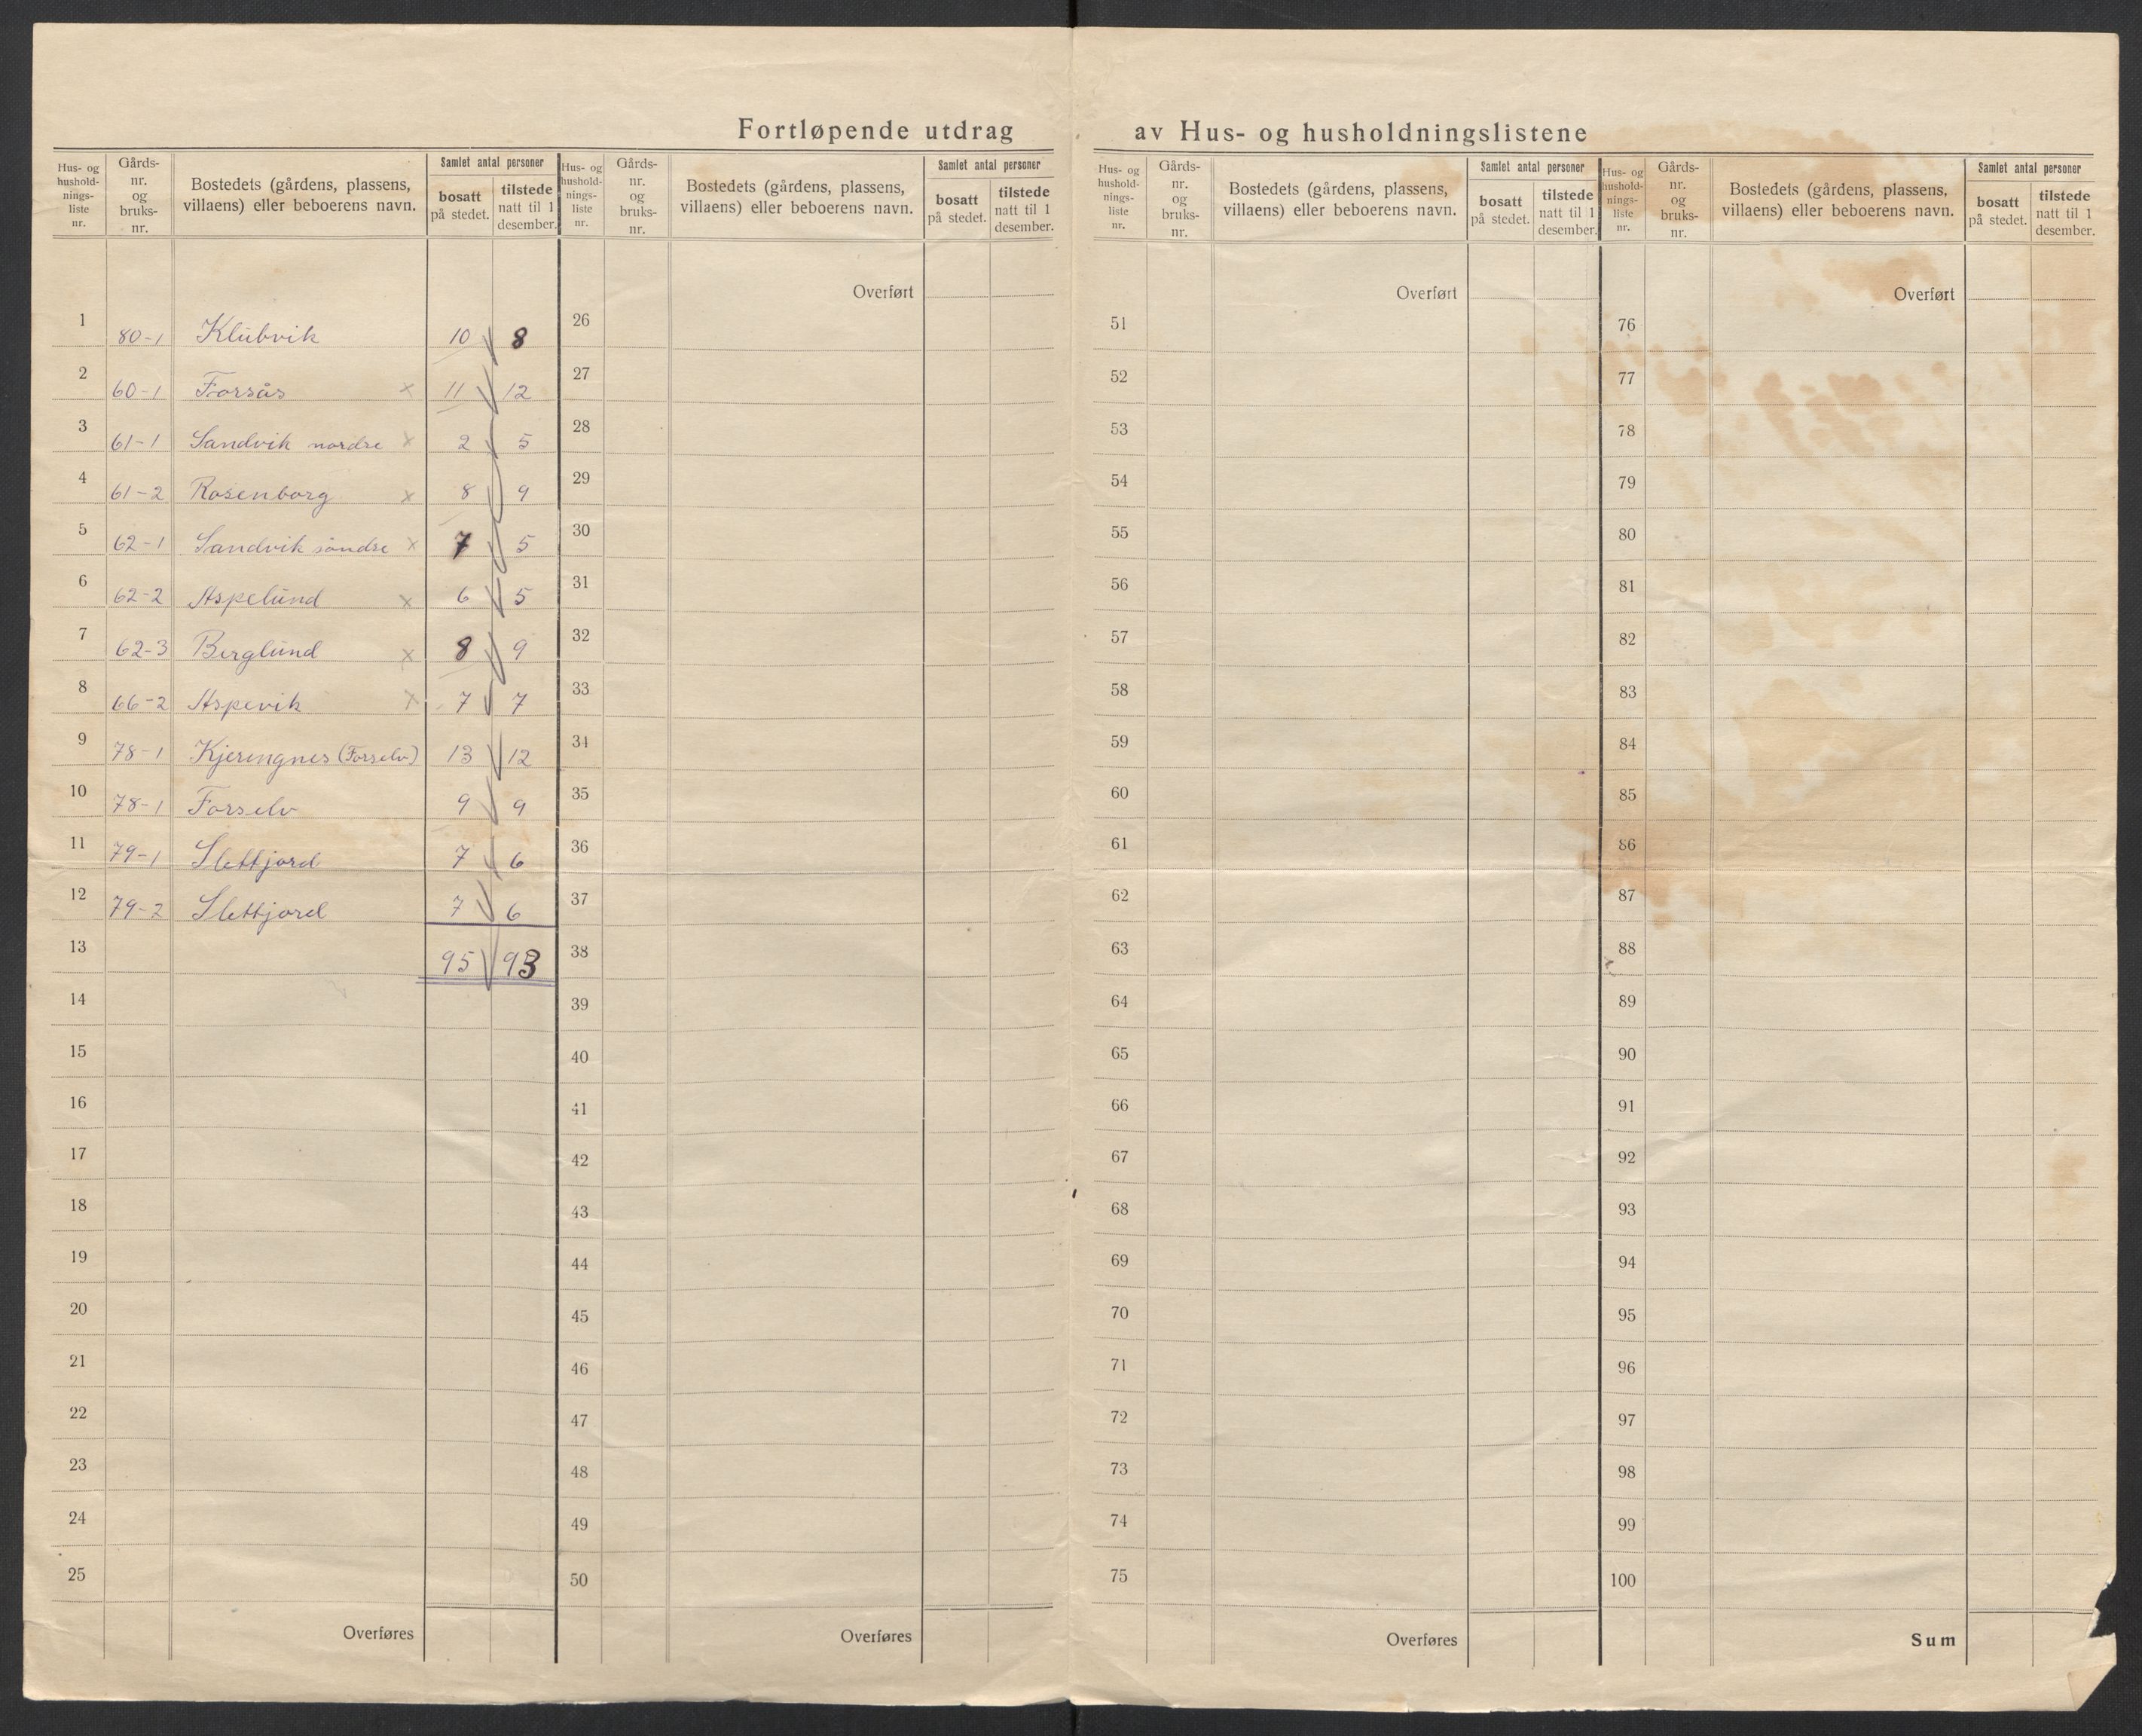 Fortløpende utdrag av Hus- og husholdningslistene
Hus- og hushold-nings-liste nr. | Gårds-nr. og bruks-nr. | Bostedets (gårdens, plassens, villaens) eller beboerens navn. | Samlet antal personer | bosatt på stedet. | tilstede natt til 1 desember.
1 80-1 Klubvik 10 8
2 60-1 Forsås x 11 12
3 61-1 Sandvik nordre x 2 5
4 61-2 Rosenborg x 8 9
5 62-1 Sandvik söndre x 7 5
6 62-2 Aspelund x 6 5
7 62-3 Berglund x 8 9
8 66-2 Aspevik x 7 7
9 78-1 Kjerengnes (Forselv) 13 12
10 78-1 Forselv 9 9
11 79-1 Slettjord 7 6
12 79-2 Slettjord 7 6
13 95 93
14
15
16
17
18
19
20
21
22
23
24
25
Overføres
Hus- og hushold-nings-liste nr. | Gårds-nr. og bruks-nr. | Bostedets (gårdens, plassens, villaens) eller beboerens navn. | Samlet antal personer | bosatt på stedet. | tilstede natt til 1 desember.
Overført
26
27
28
29
30
31
32
33
34
35
36
37
38
39
40
41
42
43
44
45
46
47
48
49
50
Overføres
Hus- og hushold-nings-liste nr. | Gårds-nr. og bruks-nr. | Bostedets (gårdens, plassens, villaens) eller beboerens navn. | Samlet antal personer | bosatt på stedet. | tilstede natt til 1 desember.
Overført
51
52
53
54
55
56
57
58
59
60
61
62
63
64
65
66
67
68
69
70
71
72
73
74
75
Overføres
Hus- og hushold-nings-liste nr. | Gårds-nr. og bruks-nr. | Bostedets (gårdens, plassens, villaens) eller beboerens navn. | Samlet antal personer | bosatt på stedet. | tilstede natt til 1 desember.
Overført
76
77
78
79
80
81
82
83
84
85
86
87
88
89
90
91
92
93
94
95
96
97
98
99
100
Sum